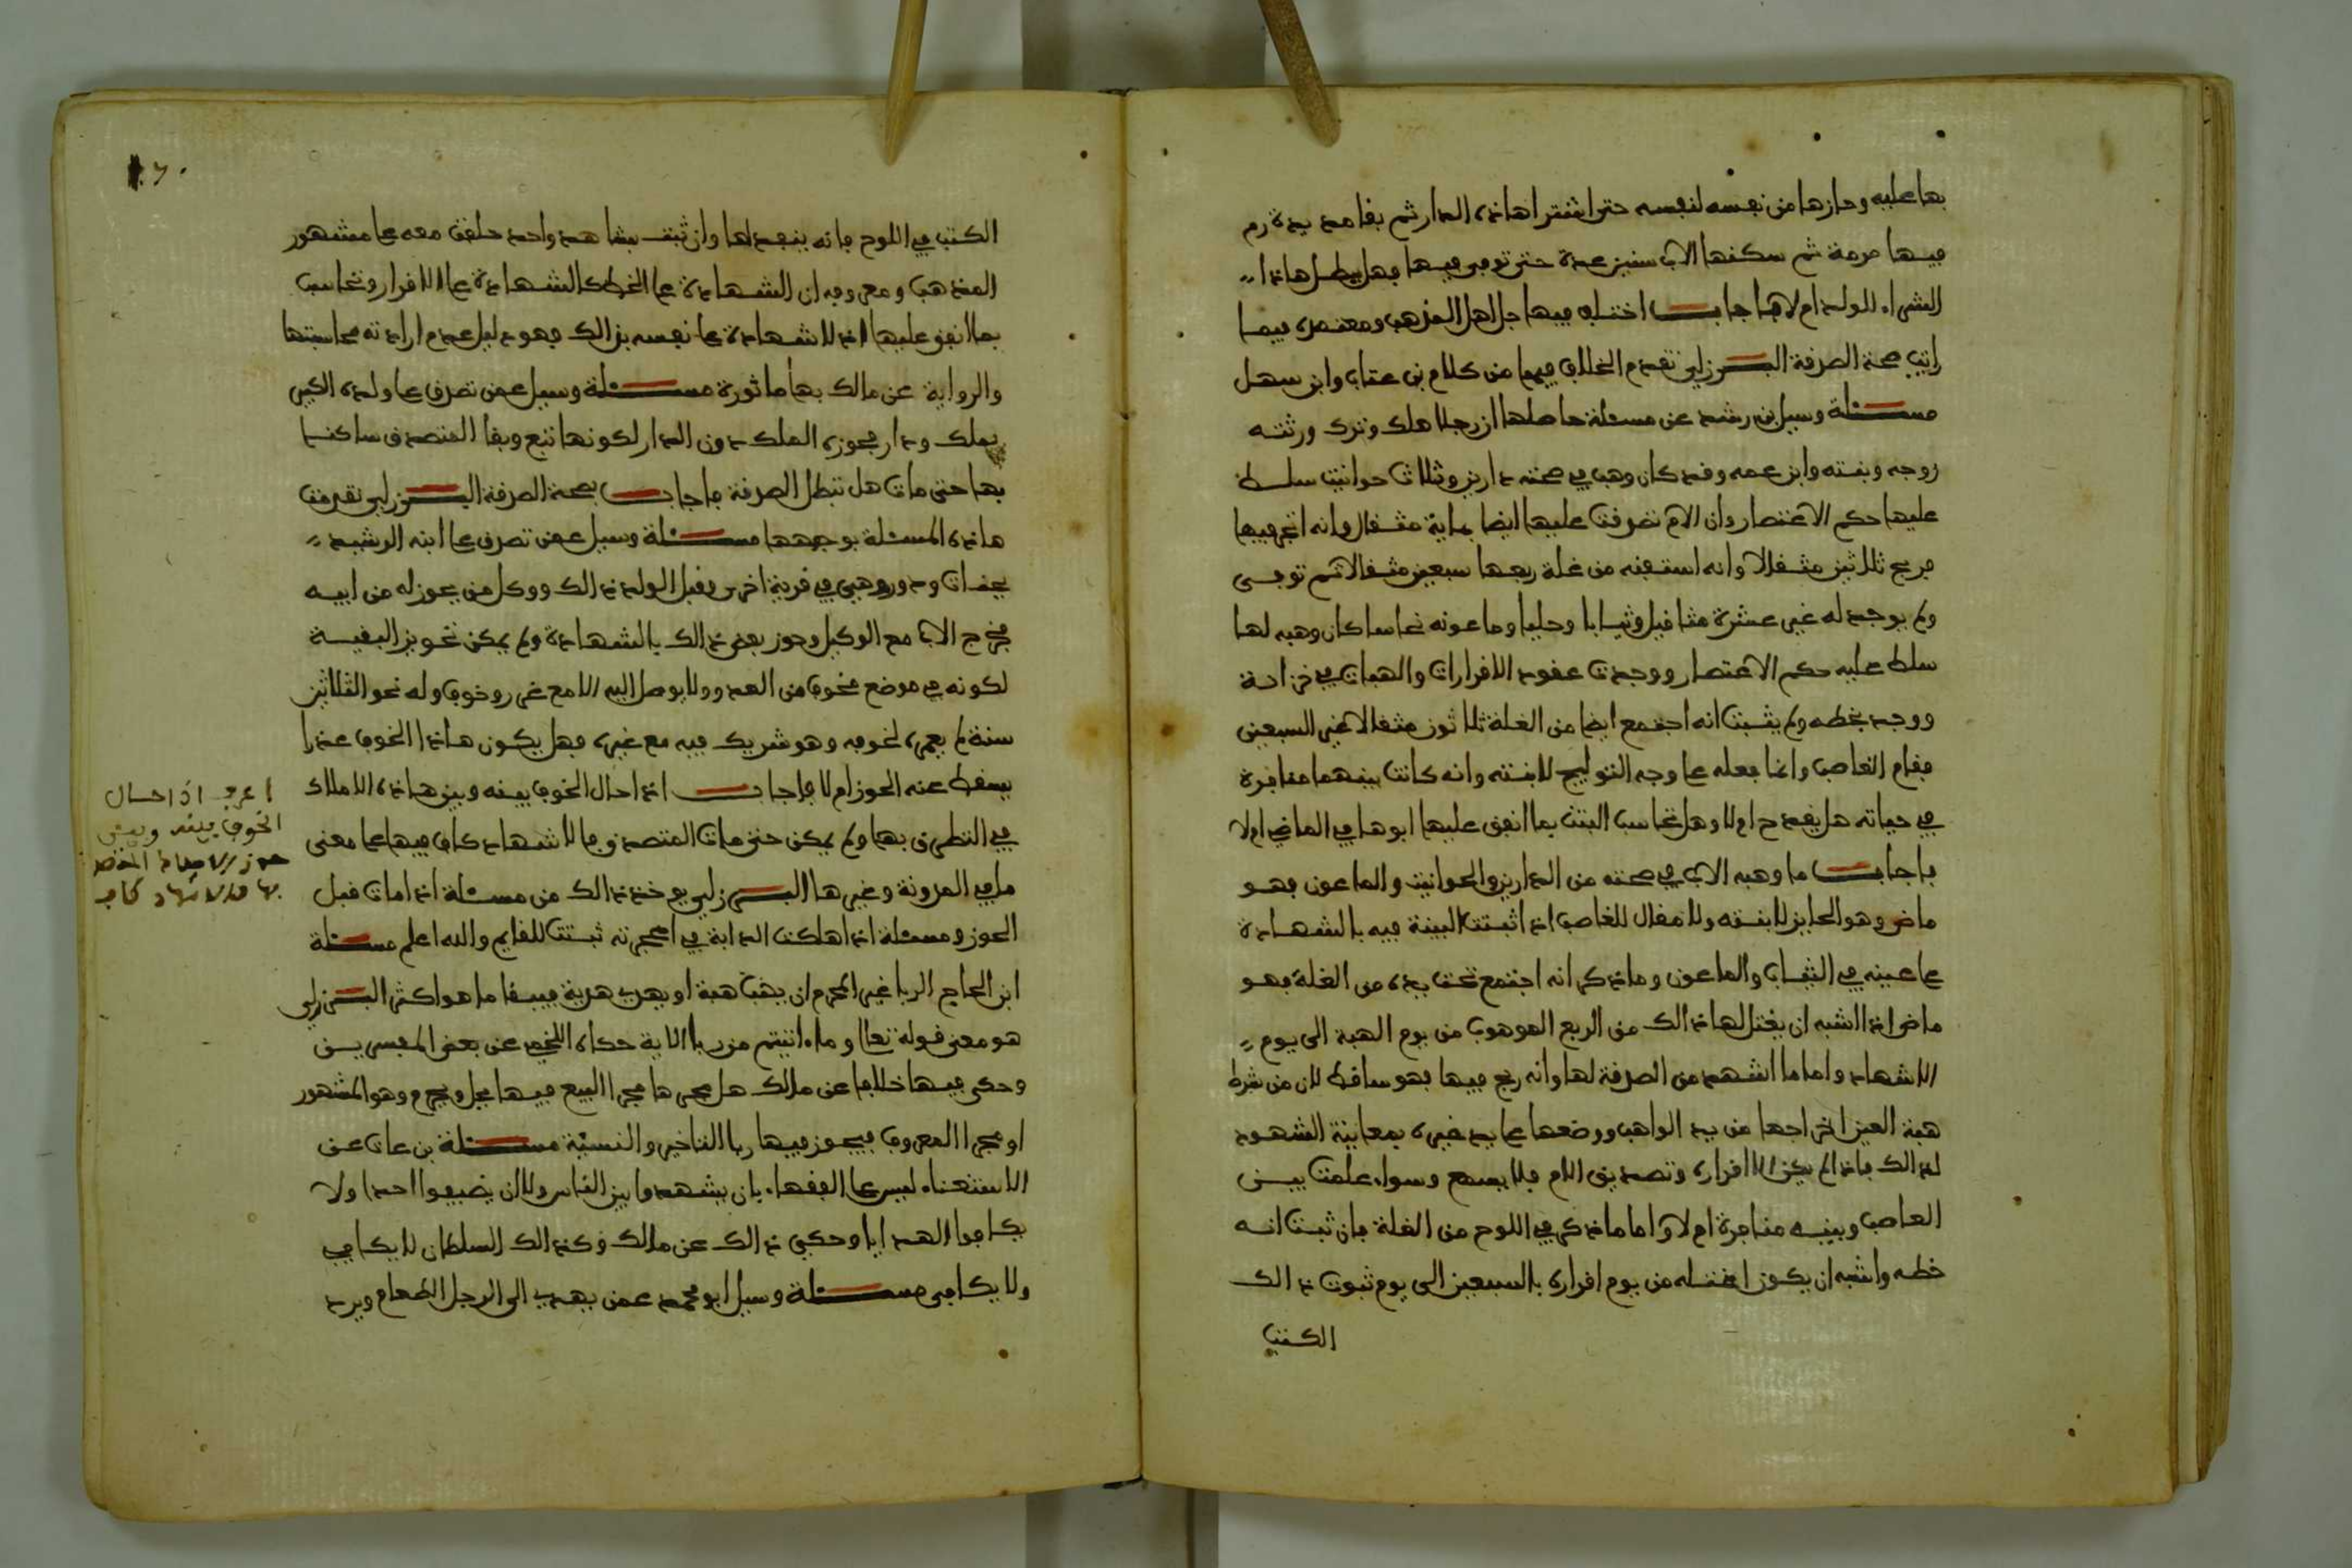 بها عليه وحازها من نفسه لنفسه حتى اشترا هاذه الدار ثم بقا مديدة رم
فيها مرمة ثم سكنها الاب سنين عدة حتى توفى فيها فهل يبطل هاذا
الشراء للولد ام لا فاجاب اختلف فيها جل اهل المذهب ومعتمده فيما
رايت صحة الصدقة البرزلي تقدم الخلاف فيها من كلام بن عتاب وابن سهل
مسئلة وسيل بن رشد عن مسئلة حاصلها ان رجلا هلك وترك ورثته
زوجه وبنته وابن عمه وقد كان وهب في صحته دارين وثلاث حوانيت سلط
عليها حكم الاعتصار وان الام تصدقت عليها ايضا بماية مثقال وانه اتجر فيها
فربح ثلاثين مثقالا وانه استفته من غلة ربعها سبعين مثقالا ثم توفى
ولم يوجد له غير عشرة مثاقيل وثيابا وحليا وماعونه نحاسا كان وهبه لها
سلط عليه حكم الاعتصار ووجدت عقود الاقرارات والهبات في خزانة
ووجد بخطه ولم يثبت انه اجتمع ايضا من الغلة ثلاثون مثقالا غير السبعين
فقام العاصب وانما فعله على وجه التوليج لابنته وانه كانت بينهما منافرة
في حياته هل يقدح ام لا وهل تحاسب البنت بما انفق عليها ابوها في الماضي ام لا
فاجاب ما وهبه الاب في صحته من الدارين والحوانيت والماعون فهو
ماض وهو الحايز لابنته ولا مقال للعاصب اذا ثبتت البينة فيه بالشهادة
على عينه في الثياب والماعون وما ذكر انه اجتمع تحت يده من الغلة فهو
ماض اذا اشبه ان يغتل لها ذالك من الربع الموهوب من يوم الهبة الى يوم
الاشهاد واما ما اشهد من الصدقة لها وانه ربح فيها فهو ساقط لان من شرط
هبة العين اخراجها من يد الواهب ووضعها على يد غيره بمعاينة الشهود
لذالك فاذا لم يكن الا اقراره وتصديق الام فلا يسمع وسواء علمت بين
العاصب وبينه منافرة ام لا واما ما ذكر في اللوح من الغلة فان ثبت انه
خطه واشبه ان يكون اغتله من يوم اقراره بالسبعين الى يوم ثبوت ذالك
الكتب
١٦٠
الكتب في اللوح فانه ينفد لها وان ثبت بشاهد واحد حلفت معه على مشهور
المذهب ومعروفه ان الشهادة على الخط كالشهادة على الاقرار وتحاسب
بما انفق عليها اذ لا شهادة على نفسه بذالك فهو دليل عدم ارادته محاسبتها
والرواية عن مالك بها ماثورة مسئلة وسيل عمن تصدق على ولده الكبير
بملك ودار فحوزه الملك دون الدار لكونها تبع وبقا المتصدق ساكنا
بها حتى مات هل تبطل الصدقة فاجاب بصحة الصدقة البرزلي تقدمت
هاذه المسئلة بوجهها مسئلة وسيل عمن تصدق على ابنه الرشيد
بجنات ودور وهي في قرية اخرى وقبل الولد ذالك ووكل من يحوز له من ابيه
فخرج الاب مع الوكيل وحوز بعض ذالك بالشهادة ولم يمكن تحويز البقية
لكونه في موضع مخوف من العدو ولا يوصل اليه الا مع غرر وخوف وله نحو الثلاثين
سنة لم يعمره لخوفه وهو شريك فيه مع غيره فهل يكون هاذا الخوف عذرا
يسقط عنه الحوز ام لا فاجاب اذا حال الخوف بينه وبين هاذه الاملاك
في التطرق بها ولم يمكن حتى مات المتصدق فالاشهاد كاف فيها على معنى
ما في المدونة وغيرها البرزلي يوخذ ذالك من مسئلة اذا مات قبل
الحوز ومسئلة اذا هلكت الدابة في احجرته ثبتت للقايم والله اعلم مسئلة
ابن الحاج الربا غير المحرم ان يهب هبة او يهدي هدية فيبتغا ما هو اكثر البرزلي
هو معنى قوله تعلا وما ءاتيتم من ربا الاية حكاه اللخمي عن بعض المفسرين
وحكى فيها خلافا عن مالك هل مجراها مجرا البيع فيها يحل ويحرم وهو المشهور
او مجرا المعروف فيجوز فيها ربا التاخير والنسيئة مسئلة بن عات عن
الاستغناء ليس على الفقهاء بان يشهدوا بين الناس ولا ان يضيفوا احدا ولا
يكافوا الهدايا وحكي ذالك عن مالك وكذالك السلطان لا يكافي
ولا يكافى مسئلة وسيل ابو محمد عمن يهدي الى الرجل الطعام ويرد
اعرف اذا حال
الخوف بينه وبين
حوز الاملاك المتصدق
بها فالاشهاد كاف